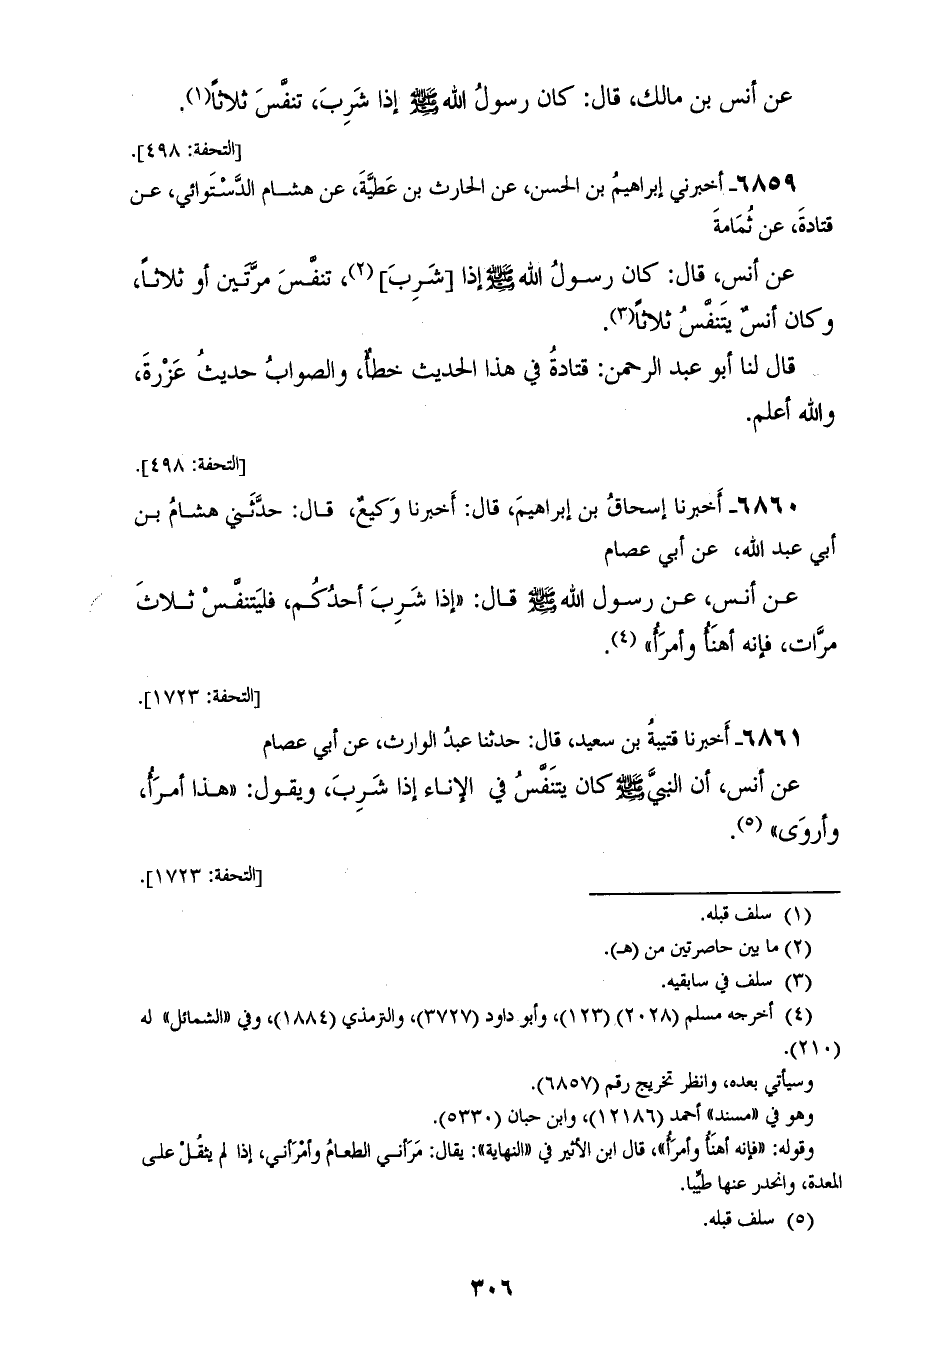 عن أنس بن مالك، قال: كان رسولُ الله ﷺ إذا شَرِبَ، تنفَّسَ ثلاثاً(١).
[التحفة: ٤٩٨].
٦٨٥٩ـ أخبرني إبراهيمُ بن الحسن، عن الحارث بن عَطيَّةَ، عن هشام الدَّسْتَوائي، عن
قتادةَ، عن ثُمَامةَ
عن أنس، قال: كان رسولُ الله ﷺ إذا [شَرِبَ] (٢)، تنفَّسَ مرَّتَين أو ثلاثاً،
وكان أنسٌ يَتنفَّسُ ثلاثاً(٣).
قال لنا أبو عبد الرحمن: قتادةُ في هذا الحديث خطأٌ، والصوابُ حديثُ عَزْرةَ،
والله أعلم.
[التحفة: ٤٩٨].
٦٨٦٠ـ أَخبرنا إسحاقُ بن إبراهيمَ، قال: أَخبرنا وَكيعٌ، قال: حدَّثَني هشامُ بن
أبي عبد الله، عن أبي عصام
عن أنس، عن رسول الله ﷺ قال: «إذا شَرِبَ أحدُكُم، فليَتنفَّسْ ثلاثَ
مرَّات، فإنه أهنَأُ وأمرَأُ» (٤).
[التحفة: ١٧٢٣].
٦٨٦١ـ أَخبرنا قتيبةُ بن سعيد، قال: حدثنا عبدُ الوارث، عن أبي عصام
عن أنس، أن النبيَّ ﷺ كان يتَنَفَّسُ في الإناء إذا شَرِبَ، ويقول: «هذا أمرَأُ،
وأروَى» (٥).
[التحفة: ١٧٢٣].
(١) سلف قبله.
(٢) ما بين حاصرتين من (هـ).
(٣) سلف في سابقيه.
(٤) أخرجه مسلم (٢٠٢٨) (١٢٣)، وأبو داود (٣٧٢٧)، والترمذي (١٨٨٤)، وفي «الشمائل» له
(٢١٠).
وسيأتي بعده، وانظر تخريج رقم (٦٨٥٧).
وهو في «مسند» أحمد (١٢١٨٦)، وابن حبان (٥٣٣٠).
وقوله: «فإنه أهنَأُ وأمرَأُ»، قال ابن الأثير في «النهاية»: يقال: مَرَأني الطعامُ وأمْرَأني، إذا لم يثقُلْ على
المعدة، وانحدر عنها طيِّبا.
(٥) سلف قبله.
٣٠٦